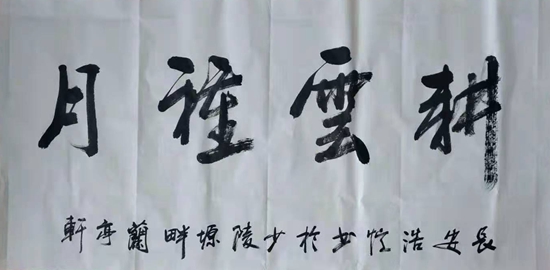 耕雲種月
長安浩愷書於少陵塬畔蘭亭軒